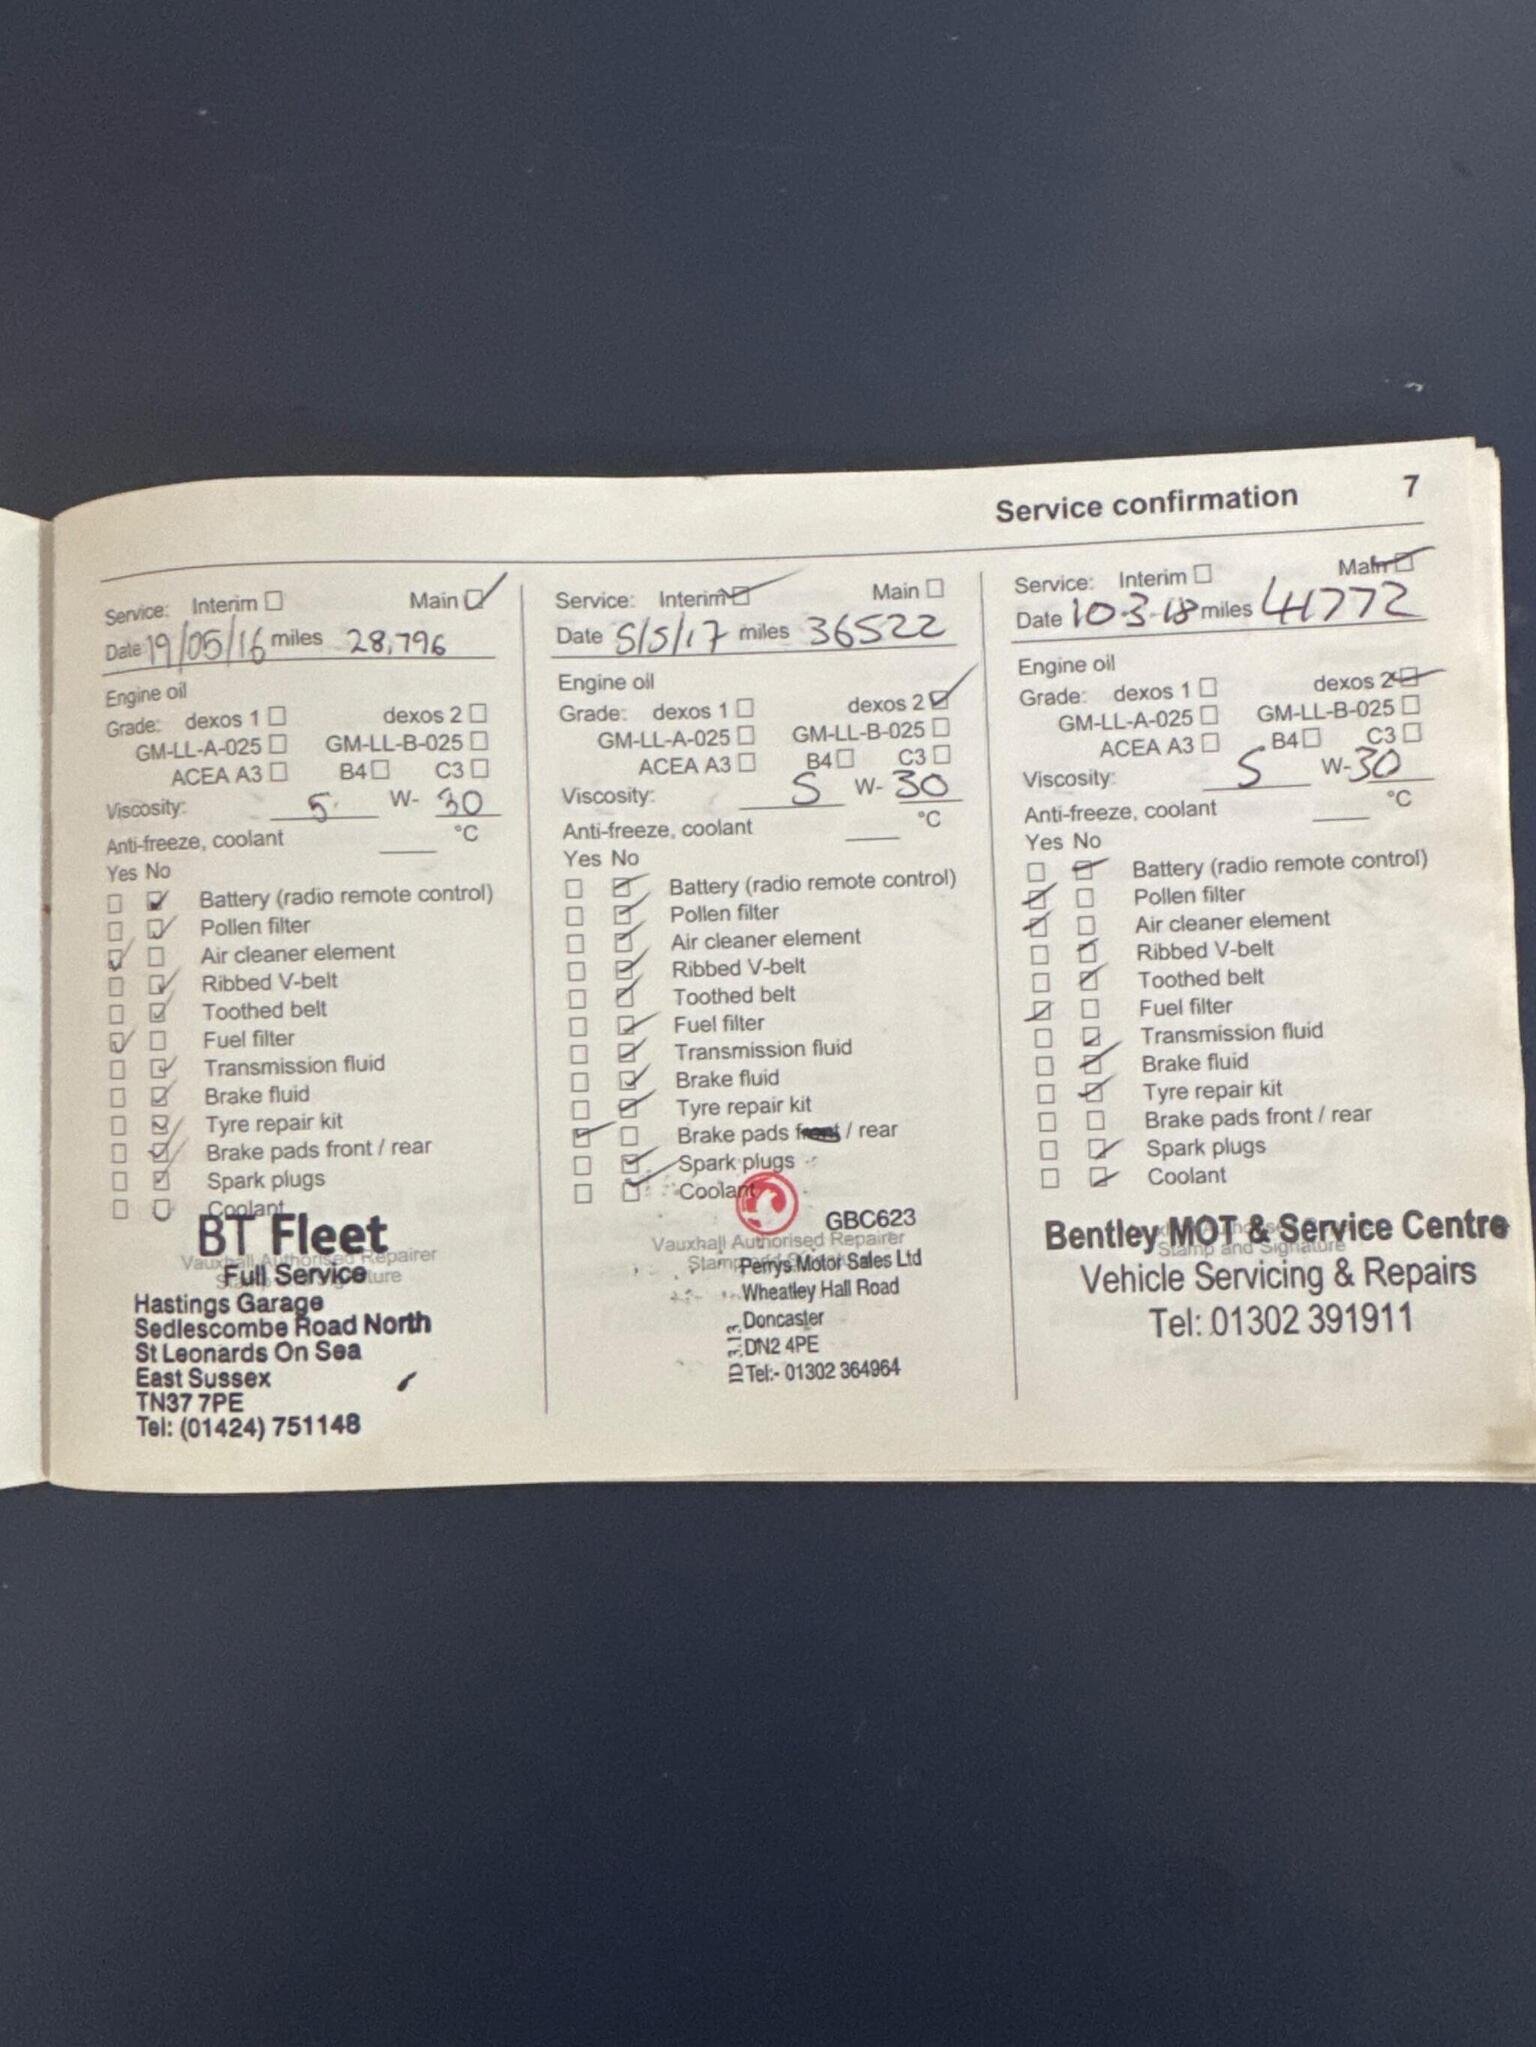 Service confirmation 7
Service: Interim Main
Date 19/05/16 miles 28,796
Engine oil
Grade: dexos 1 dexos 2
GM-LL-A-025 GM-LL-B-025
ACEA A3 B4 C3
Viscosity: 5 W- 30
Anti-freeze, coolant °C
Yes No
Battery (radio remote control)
Pollen filter
Air cleaner element
Ribbed V-belt
Toothed belt
Fuel filter
Transmission fluid
Brake fluid
Tyre repair kit
Brake pads front / rear
Spark plugs
Coolant
BT Fleet
Vauxhall Authorised Repairer
Full Service
Stamp and Signature
Hastings Garage
Sedlescombe Road North
St Leonards On Sea
East Sussex
TN37 7PE
Tel: (01424) 751148
Service: Interim Main
Date 5/5/17 miles 36522
Engine oil
Grade: dexos 1 dexos 2
GM-LL-A-025 GM-LL-B-025
ACEA A3 B4 C3
Viscosity: 5 W- 30
Anti-freeze, coolant °C
Yes No
Battery (radio remote control)
Pollen filter
Air cleaner element
Ribbed V-belt
Toothed belt
Fuel filter
Transmission fluid
Brake fluid
Tyre repair kit
Brake pads front / rear
Spark plugs
Coolant
GBC623
Vauxhall Authorised Repairer
Stamp and Signature
Perrys Motor Sales Ltd
Wheatley Hall Road
Doncaster
DN2 4PE
Tel:- 01302 364964
ID 3.13
Service: Interim Main
Date 10-3-18 miles 41772
Engine oil
Grade: dexos 1 dexos 2
GM-LL-A-025 GM-LL-B-025
ACEA A3 B4 C3
Viscosity: 5 W-30
Anti-freeze, coolant °C
Yes No
Battery (radio remote control)
Pollen filter
Air cleaner element
Ribbed V-belt
Toothed belt
Fuel filter
Transmission fluid
Brake fluid
Tyre repair kit
Brake pads front / rear
Spark plugs
Coolant
Bentley MOT & Service Centre
Stamp and Signature
Vehicle Servicing & Repairs
Tel: 01302 391911